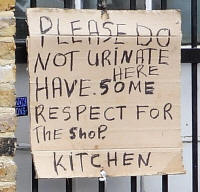 PLEASE DO
NOT URINATE
HERE
HAVE. SOME
RESPECT FOR
The SHOP.
KITCHEN.